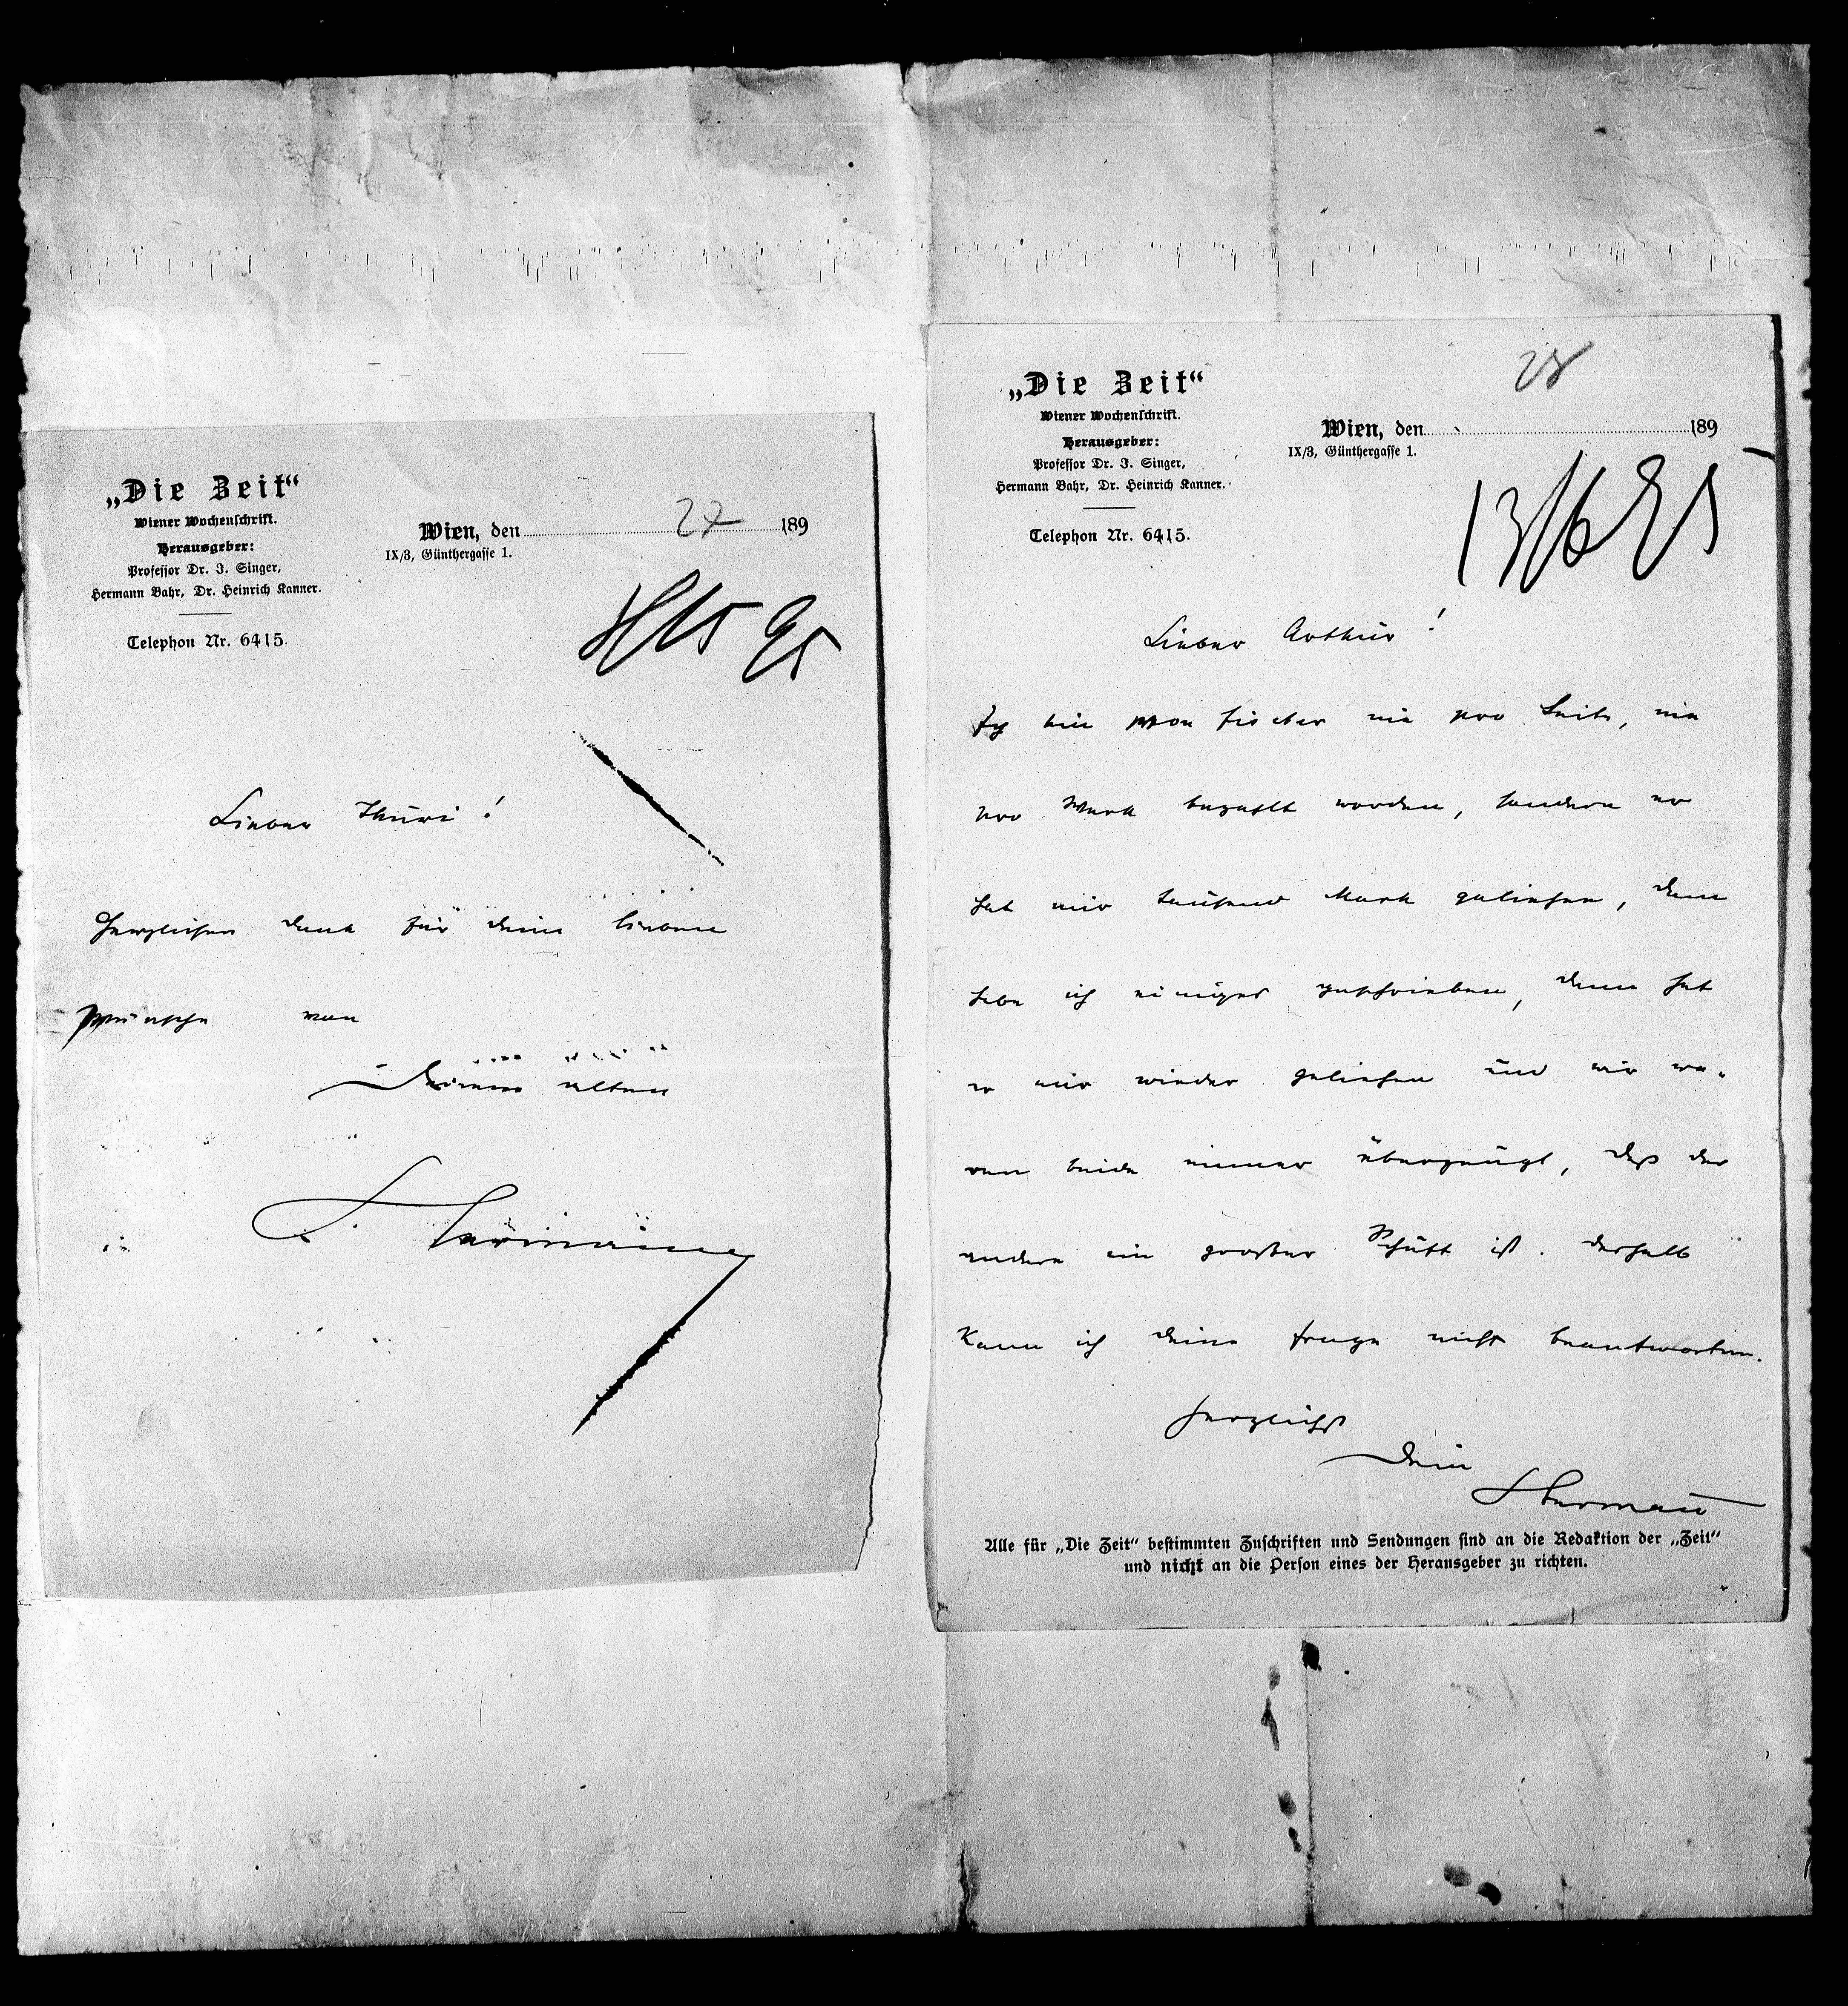 „Die Zeit“
Wiener Wochenschrift.
Herausgeber:
Professor Dr. I. Singer,
Hermann Bahr, Dr. Heinrich Kanner.
Telephon Nr. 6415.
27
Wien, den 189
IX/3, Günthergasse 1.
95
Lieber Thuri!
Herzlichen Dank für deine lieben
Wünsche von
Deinem alten
Hermann
„Die Zeit“
Wiener Wochenschrift.
Herausgeber:
Professor Dr. I. Singer,
Hermann Bahr, Dr. Heinrich Kanner.
Telephon Nr. 6415.
28
Wien, den 189
IX/3, Günthergasse 1.
13/6 95
Lieber Arthur!
Ich bin von Fischer nie pro Seite, nie
pro Werk bezahlt worden, sondern er
hat mir tausend Mark geliehen, dann
habe ich einiges geschrieben, dann hat
er mir wieder geliehen und wir wa-
ren beide immer überzeugt, daß der
andere ein großer Schuft ist. Deshalb
kann ich deine Frage nicht beantworten.
Herzlichst
Dein
Hermann
Alle für „Die Zeit“ bestimmten Zuschriften und Sendungen sind an die Redaktion der „Zeit“
und nicht an die Person eines der Herausgeber zu richten.